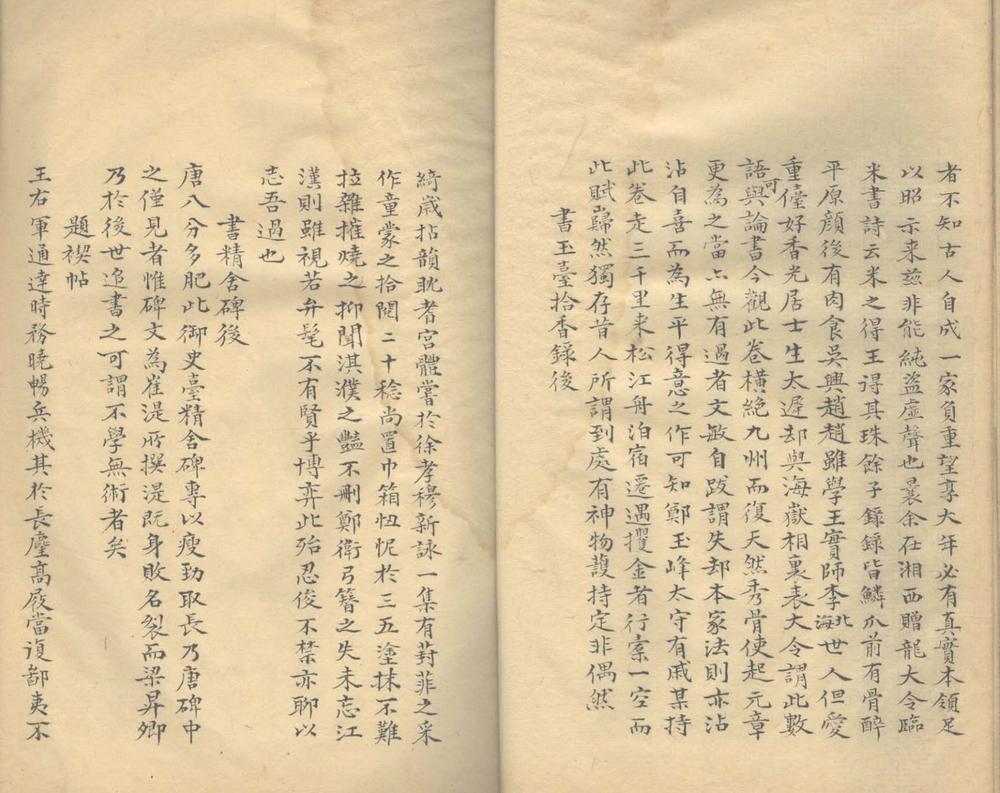 者不知古人自成一家負重望享大年必有真實本領足
以昭示来茲非能純盜虛聲也曩余在湘西贈龍大令臨
米書詩云米之得王得其珠餘子錄錄皆鱗爪前有骨醉
平原顏後有肉食吳興趙趙雖學王實師李北海世人但愛
重儓好香光居士生太遲却與海嶽相裏表大令謂此數
語可與論書今觀此卷橫絶九州而復天然秀骨使起元章
更為之當亦無有過者文敏自跋謂失却本家法則亦沾
沾自喜而為生平得意之作可知鄭玉峰太守有戚某持
此卷走三千里来松江舟泊宿遷遇攫金者行橐一空而
此賦巋然獨存昔人所謂到處有神物護持定非偶然
書玉臺拾香錄後
綺歲拈韻耽耆宮體嘗於徐孝穆新詠一集有葑菲之采
作童蒙之拾閱二十稔尚置巾箱忸怩於三五塗抹不難
拉雜摧燒之抑聞淇濮之豔不刪鄭衛弓簪之失未忘江
漢則雖視若弁髦不有賢乎博弈此殆忍俊不禁亦聊以
志吾過也
書精舍碑後
唐八分多肥此御史臺精舍碑專以瘦勁取長乃唐碑中
之僅見者惟碑文為崔湜所撰湜既身敗名裂而梁昇卿
乃於後世追書之可謂不學無術者矣
題禊帖
王右軍通達時務曉暢兵機其於長麈高屐當復鄙夷不